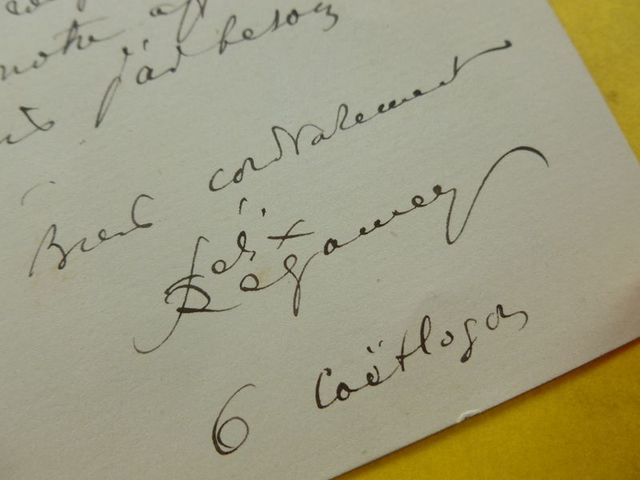 notre
j'ai besoin
Bien cordialement
Félix
Régamey
6 Coëtlogon